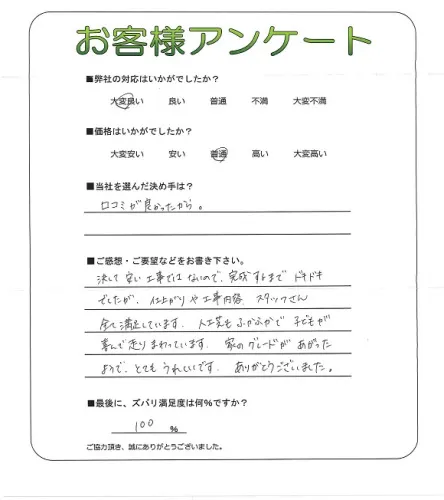 お客様アンケート
■弊社の対応はいかがでしたか?
大変良い 良い 普通 不満 大変不満
■価格はいかがでしたか?
大変安い 安い 普通 高い 大変高い
■当社を選んだ決め手は?
口コミが良かったから。
■ご感想・ご要望などをお書き下さい。
決して安い工事ではないので、完成するまでドキドキ
でしたが、仕上がりや工事内容、スタッフさん
全て満足しています。人工芝もふかふかで子どもが
喜んで走りまわっています。家のグレードがあがった
ようで、とてもうれしいです。ありがとうございました。
■最後に、ズバリ満足度は何%ですか?
100 %
ご協力頂き、誠にありがとうございました。